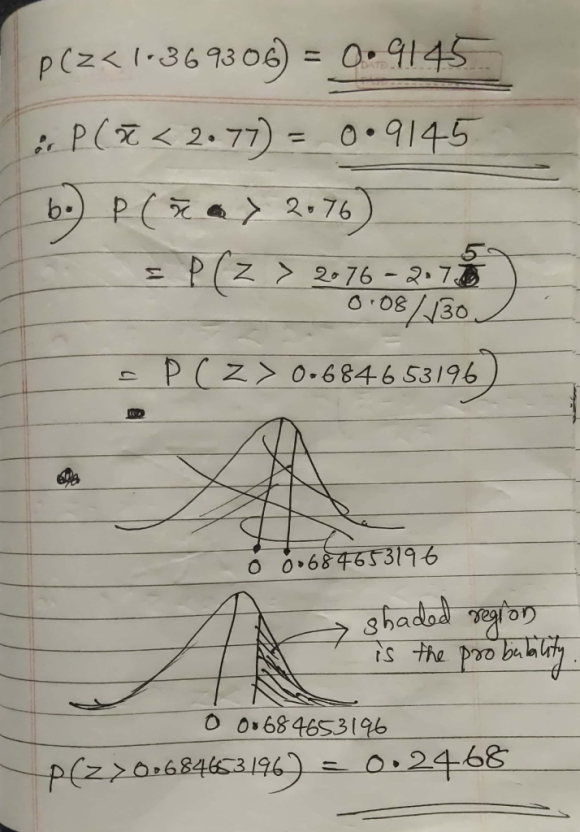 P(Z < 1.369306) = 0.9145
∴ P(x̄ < 2.77) = 0.9145
b.) P(x̄ > 2.76)
= P(Z > (2.76 - 2.75)/(0.08/√30))
= P(Z > 0.684653196)
0 0.684653196
shaded region
is the probability.
0 0.684653196
P(Z > 0.684653196) = 0.2468